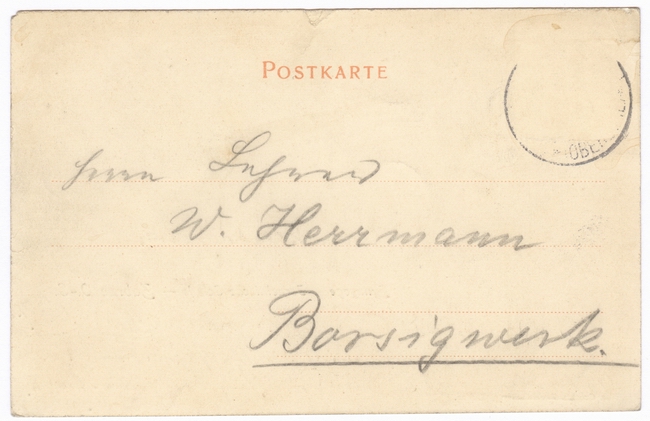 POSTKARTE
Herrn Lehrer
W. Herrmann
Borsigwerk.